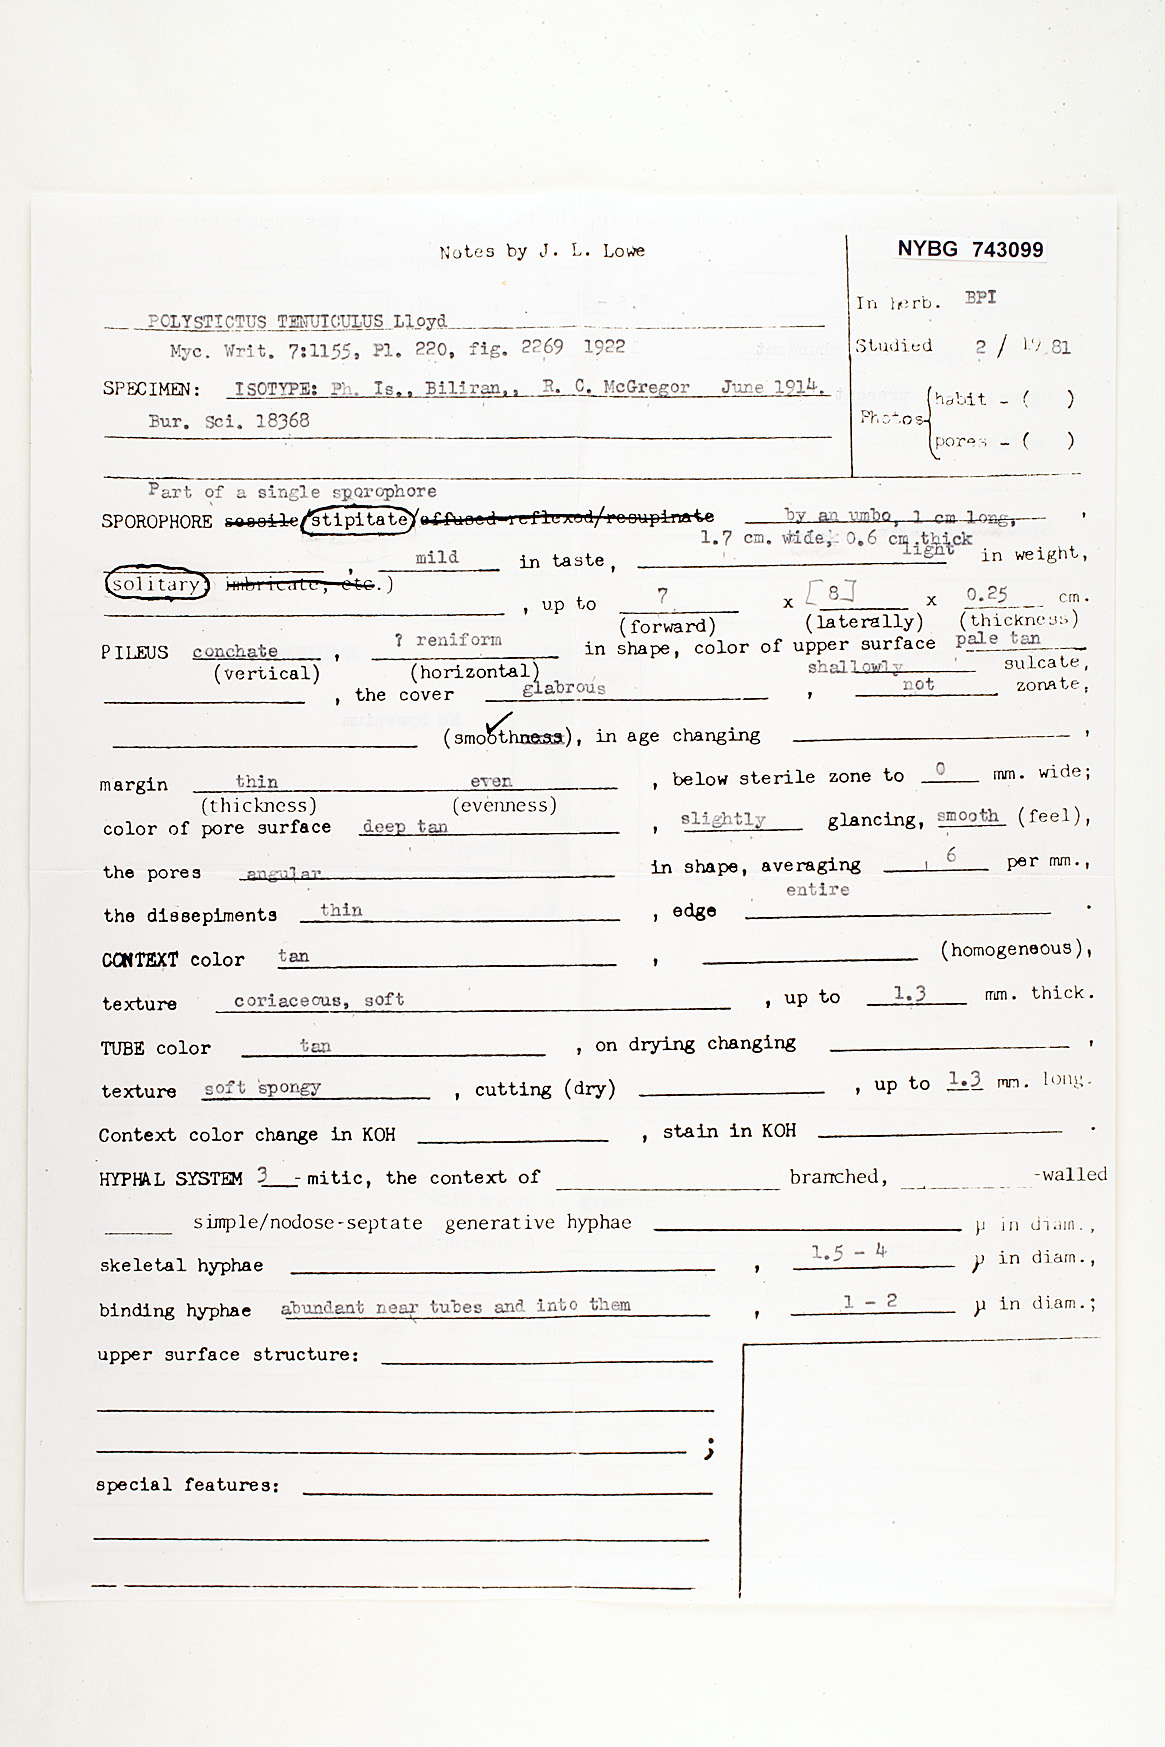 Notes by J. L. Lowe
NYBG 743099
In herb. BPI
POLYSTICTUS TENUICULUS Lloyd
Myc. Writ. 7:1155, Pl. 220, fig. 2269 1922
Studied 2 / 19 81
SPECIMEN: ISOTYPE: Ph. Is., Biliran,, R. C. McGregor June 1914.
Bur. Sci. 18368
Photos habit - ( )
pores - ( )
Part of a single sporophore
SPOROPHORE sessile/stipitate/effused-reflexed/resupinate by an umbo, 1 cm long, ,
1.7 cm. wide, 0.6 cm.thick
, mild in taste, light in weight,
(solitary) imbricate, etc.)
, up to 7 x [8] x 0.25 cm.
(forward) (laterally) (thickness)
PILEUS conchate , ? reniform in shape, color of upper surface pale tan
(vertical) (horizontal) shallowly sulcate,
, the cover glabrous , not zonate,
(smoothness), in age changing ,
margin thin even , below sterile zone to 0 mm. wide;
(thickness) (evenness)
color of pore surface deep tan , slightly glancing, smooth (feel),
the pores angular in shape, averaging 6 per mm.,
the dissepiments thin , edge entire .
CONTEXT color tan , (homogeneous),
texture coriaceous, soft , up to 1.3 mm. thick.
TUBE color tan , on drying changing ,
texture soft spongy , cutting (dry) , up to 1.3 mm. long.
Context color change in KOH , stain in KOH .
HYPHAL SYSTEM 3 -mitic, the context of branched, -walled
simple/nodose-septate generative hyphae µ in diam.,
skeletal hyphae , 1.5 - 4 µ in diam.,
binding hyphae abundant near tubes and into them , 1 - 2 µ in diam.;
upper surface structure:
;
special features: